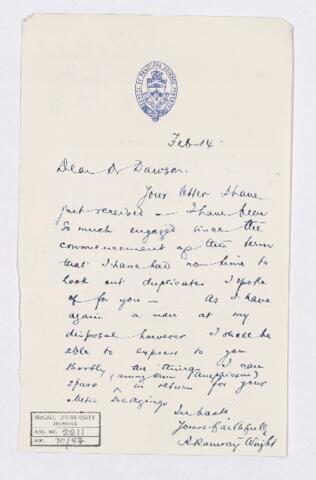 SCHOOL OF PRACTICAL SCIENCE TORONTO
Feb 14
Dear Dr Dawson.
Your letter I have
just received — I have been
so much engaged since the
commencement of this term
that I have had no time to
look out duplicates I spoke
of for you — As I have
again a man at my
disposal however I shall be
able to express to you
shortly any things I can
(using own Amphioxus)
spare in return for your
Metis Dredgings
In haste,
Yours faithfully
R Ramsay Wright
McGILL UNIVERSITY
ARCHIVES
ACC. NO. 2211
REF. 70/57